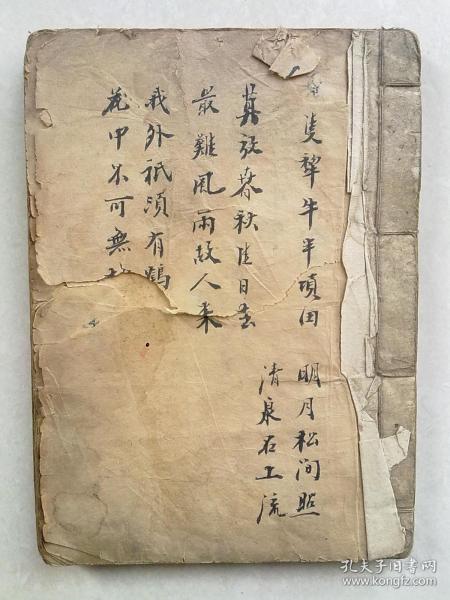 隻犂牛半頃田
莫放春秋佳日去
最難風雨故人来
我外祇須有鶴
花中不可無
明月松間照
清泉石上流
孔夫子旧书网
www.kongfz.com